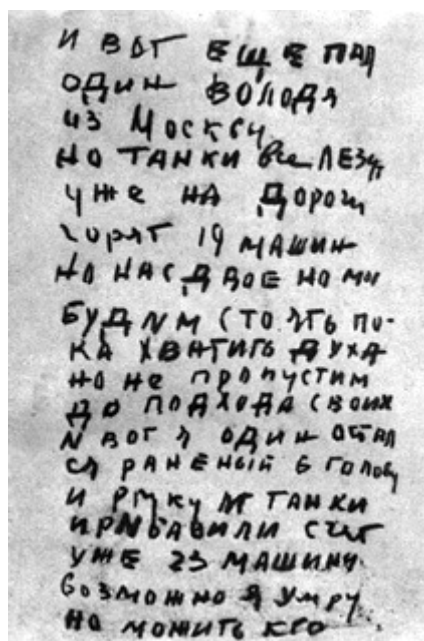 И ВОТ ЕЩЕ ПАЛ
ОДИН ВОЛОДЯ
ИЗ МОСКВЫ
НО ТАНКИ все ЛЕЗУТ
Уже НА Дороги
горят 19 МАШИН
НО НАС ДВОЕ НО МЫ
БУДИМ СТОЯТЬ ПО-
КА ХВАТИТЬ ДУХА
НО не ПРОПУСТИМ
ДО ПОДХОДА СВОИХ
И ВОТ Я ОДИН ОСТАЛ
СЯ РАНЕНЫЙ в голову
И РУКУ И ТАНКИ
ПРИБАВИЛИ СЧЕТ
УЖЕ 23 МАШИНЫ
возможно я умру
НО МОЖИТЬ КТО